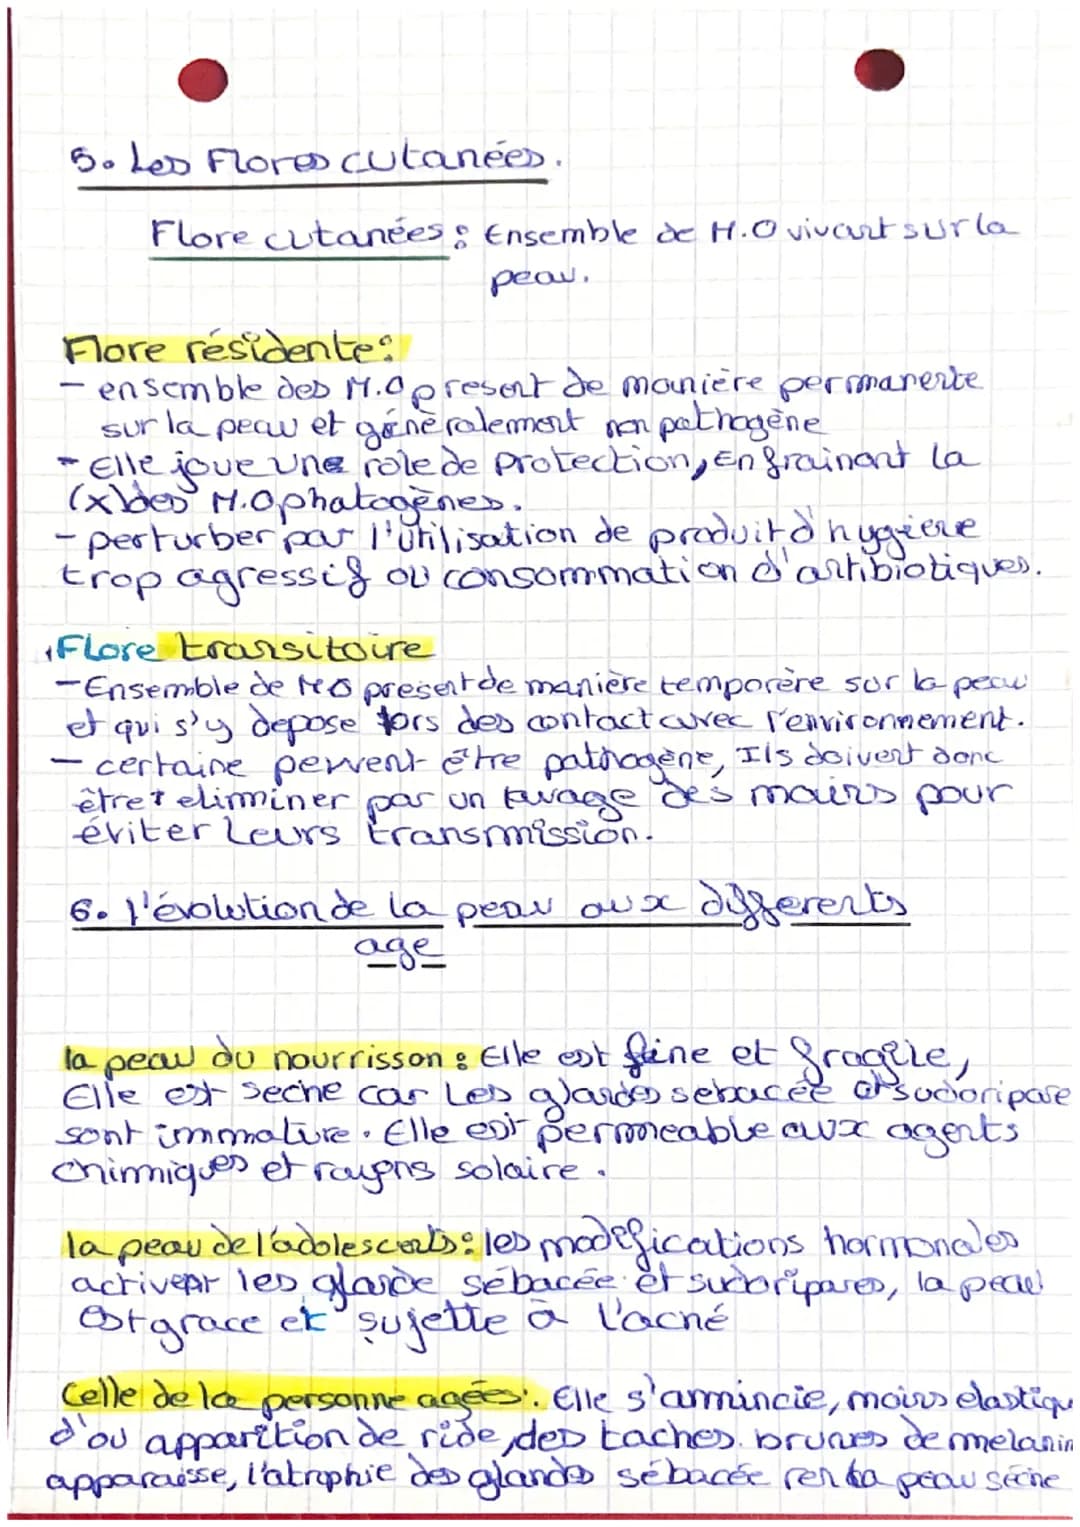 5. Les Flores cutanées.
Flore cutanées : Ensemble de M.O vivant sur la
peau.
Flore résidente :
- ensemble des M.O present de manière permanente
sur la peau et génèralement non pathogène
- Elle joue une role de protection, en frainant la
(x) des M.O phatogènes.
- perturber par l'utilisation de produit d'hygiène
trop agressif ou consommation d'antibiotiques.
Flore transitoire
- Ensemble de MO present de manière temporère sur la peau
et qui s'y depose lors des contact avec l'environnement.
- certaine peuvent être pathogène, Ils doivent donc
être eliminer par un lavage des mains pour
éviter leurs transmission.
6. l'évolution de la peau aux differents
age
la peau du nourrisson : Elle est fine et fragile,
Elle est seche car les glandes sebacée et sudoripare
sont immature. Elle est permeable aux agents
chimiques et rayons solaire.
la peau de l'adolescents : les modifications hormonales
activent les glande sébacée et sudoripares, la peau
est grace et sujette à l'acné
Celle de la personne agées : Elle s'amincie, moins elastiqu
d'où apparition de ride, des taches brunes de melanin
apparaisse, l'atrophie des glandes sébacée ren la peau sèche